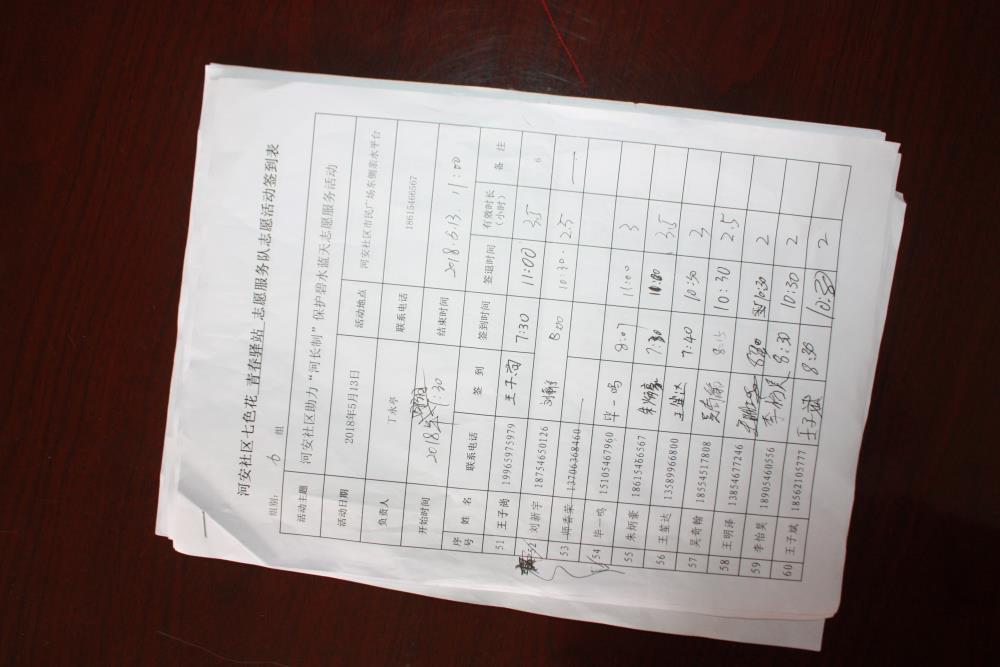 河安社区七色花 青春驿站 志愿服务队志愿活动签到表
组别: 6 组
活动主题 河安社区助力“河长制”保护碧水蓝天志愿服务活动
活动日期 2018年5月13日 活动地点 河安社区市民广场东侧亲水平台
负责人 丁永亭 联系电话 18615466567
开始时间 2018 :30 结束时间 2018.6.13. 11:00
序号 姓 名 联系电话 签 到 签到时间 签退时间 有效时长(小时) 备 注
51 王子尚 19965975979 王子尚 7:30 11:00 3.5 6
52 刘新宇 18754650126 刘新宇 8:00 10:30 2.5 —
53 师香荣 13706368460 —
54 毕一鸣 15105467960 毕一鸣 8:07 11:00 3
55 朱炳豪 18615466567 朱炳豪 7:30 11:00 3.5
56 王笙达 13589966800 王笙达 7:40 10:30 3
57 吴奇翰 18554517808 吴奇翰 8:15 10:30 2.5
58 王明泽 13854677246 10:30 2
59 李怡昊 18905460556 李怡昊 8:30 10:30 2
60 王子斌 18562105777 王子斌 8:30 10:30 2